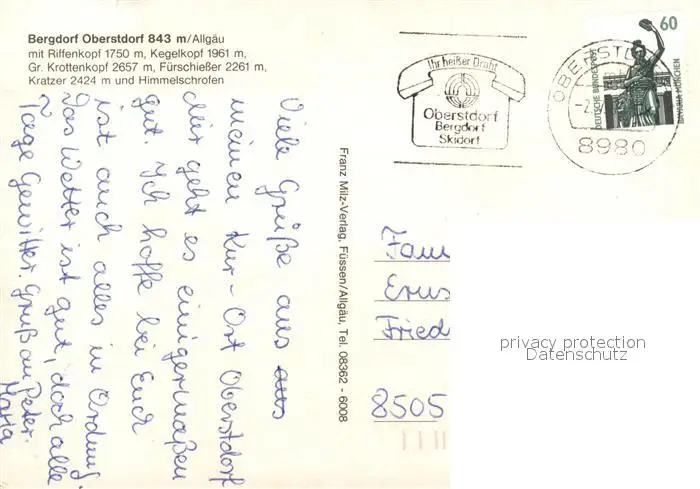 Bergdorf Oberstdorf 843 m/Allgäu
mit Riffenkopf 1750 m, Kegelkopf 1961 m,
Gr. Krottenkopf 2657 m, Fürschießer 2261 m,
Kratzer 2424 m und Himmelschrofen
Viele Grüße aus aus
meinen Kur-Ort Oberstdorf
Mir geht es einigermaßen
gut. Ich hoffe bei Euch
ist auch alles in Ordnung.
Das Wetter ist gut, doch alle
Tage Gewitter. Gruß an Peter.
Maria
Franz Milz-Verlag, Füssen/Allgäu, Tel. 08362 - 6008
Ihr heißer Draht
Oberstdorf
Bergdorf
Skidorf
OBERSTD
8980
60
DEUTSCHE BUNDESPOST
BAVARIA MÜNCHEN
Fam
Erns
Fried
8505
privacy protection
Datenschutz